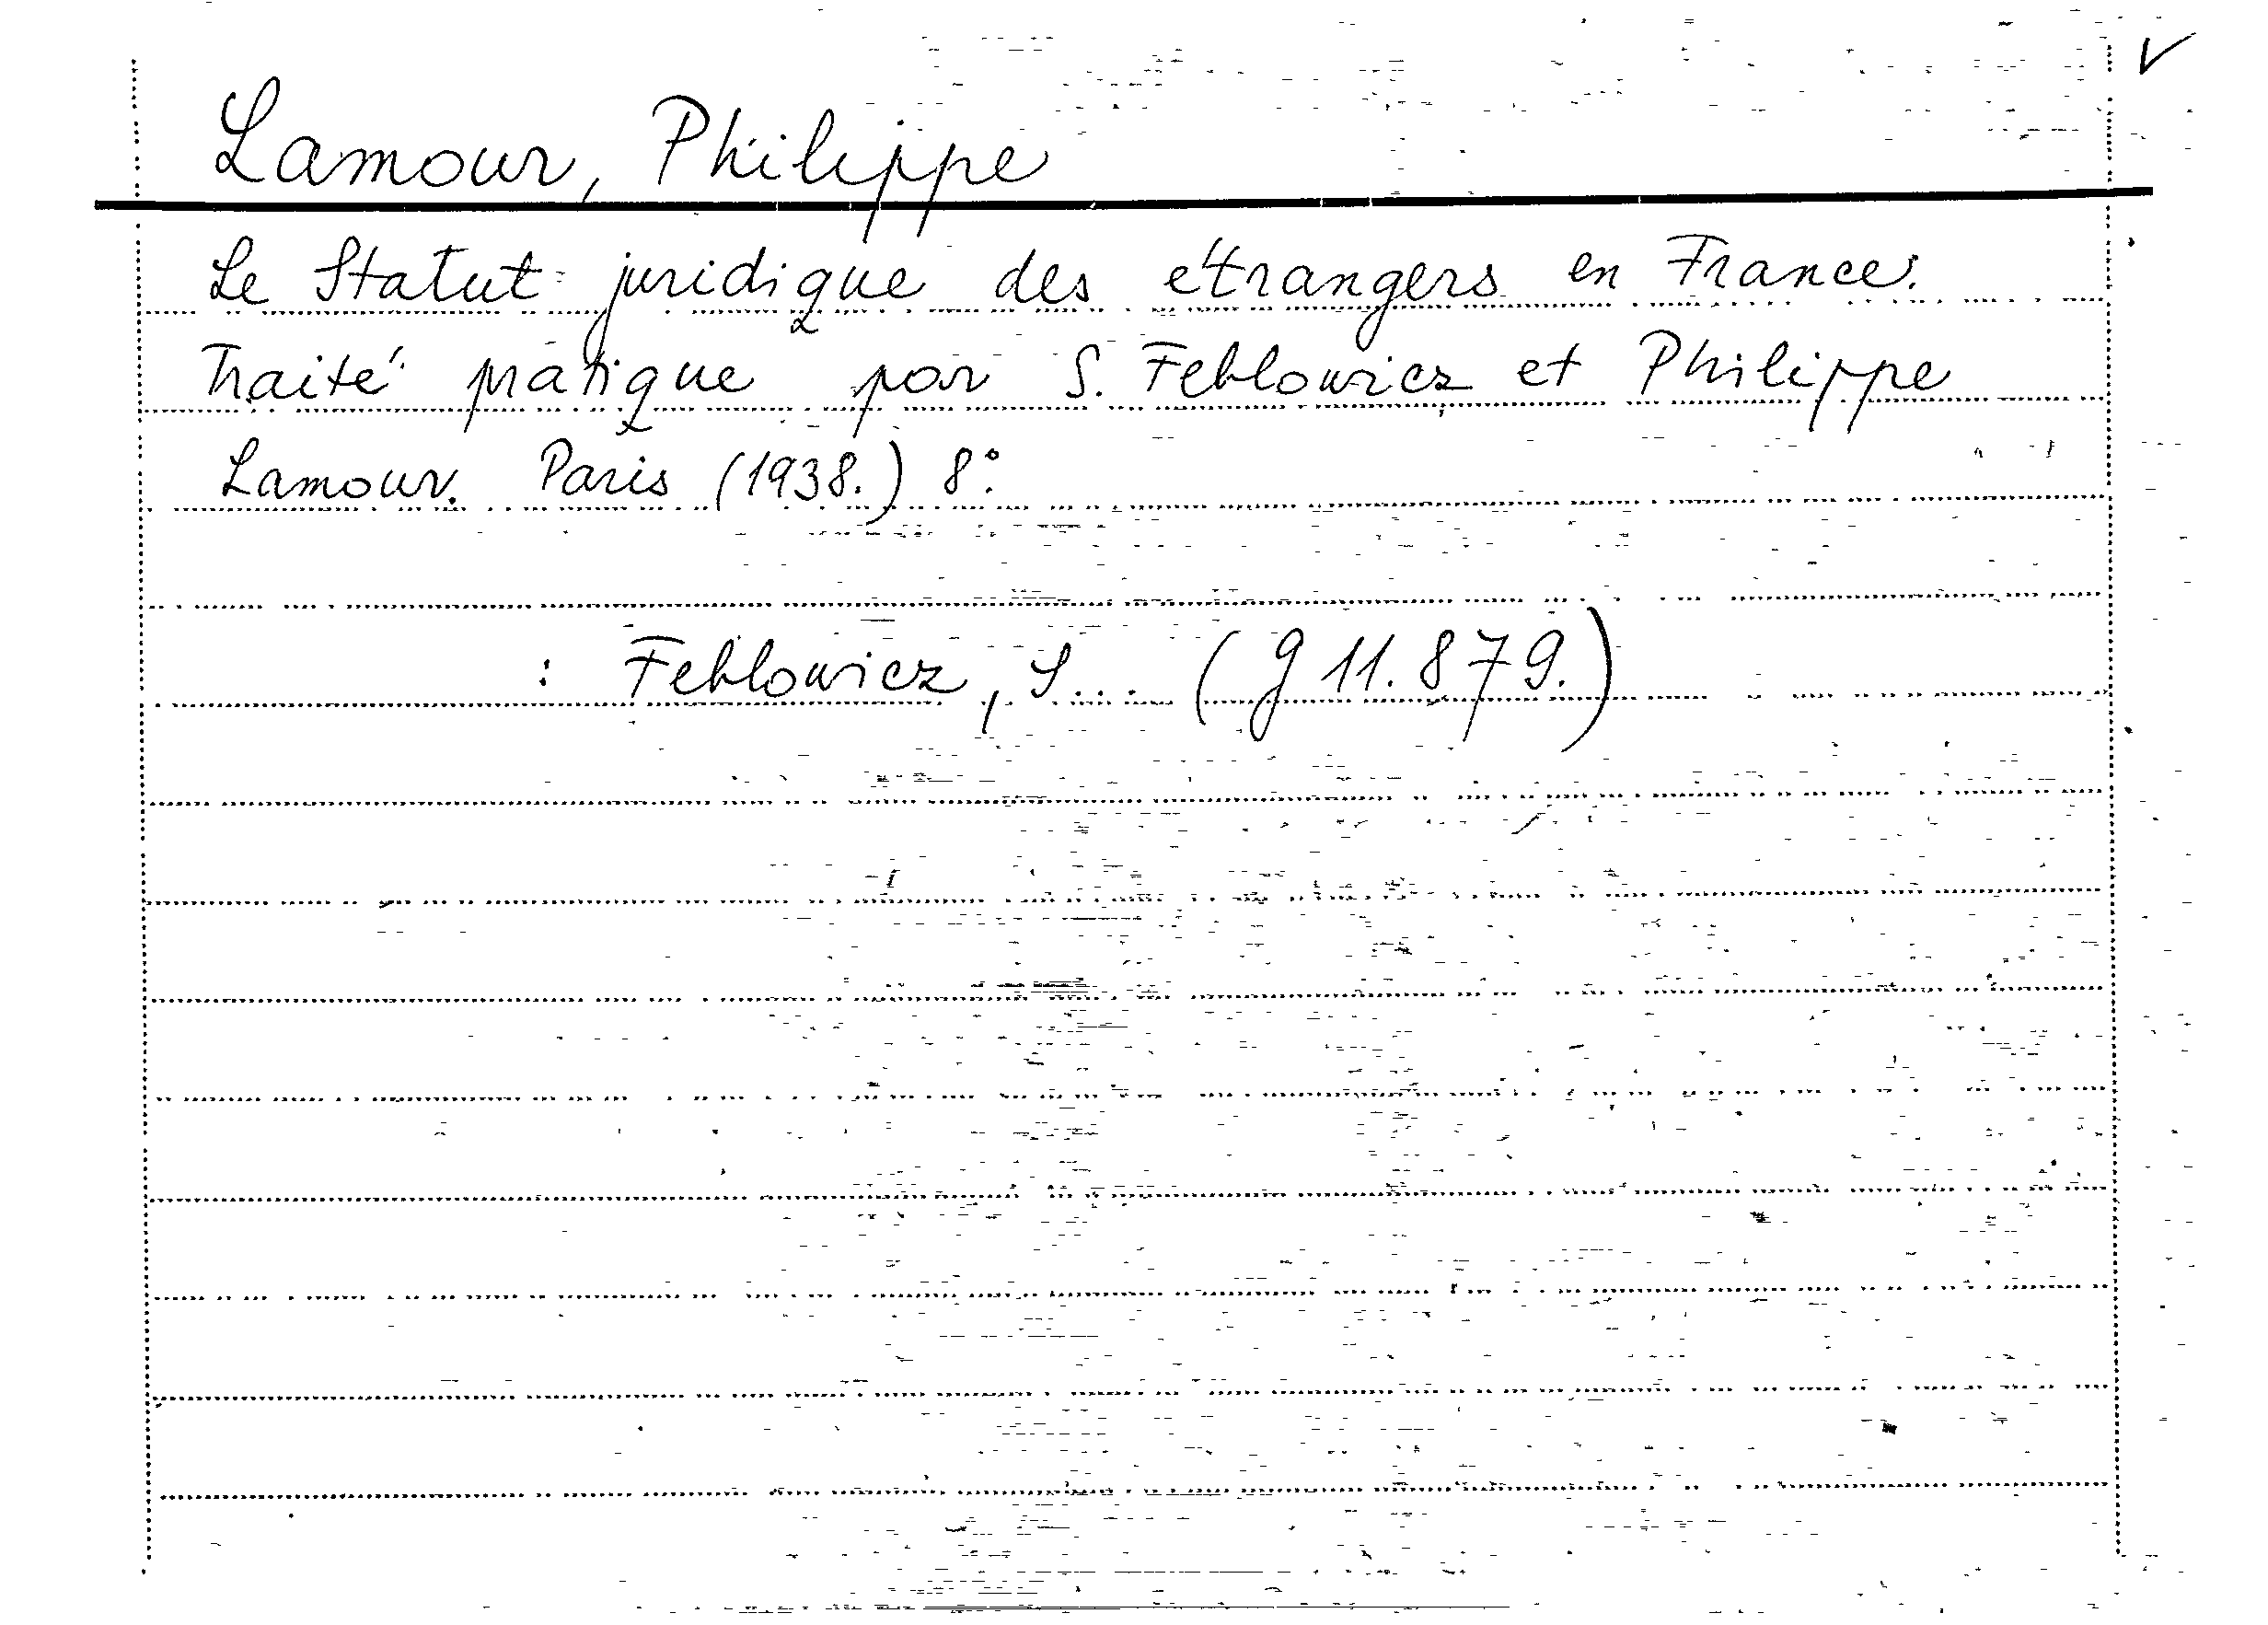 Lamour, Philippe
Le Statut juridique des étrangers en France.
Traité pratique par S. Feblowicz et Philippe
Lamour. Paris (1938.) 8°.
: Feblowicz, S... (g 11.879.)